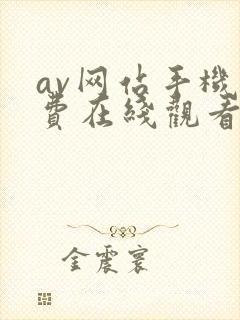 av网佔手機
費在綫觀看
金震寰